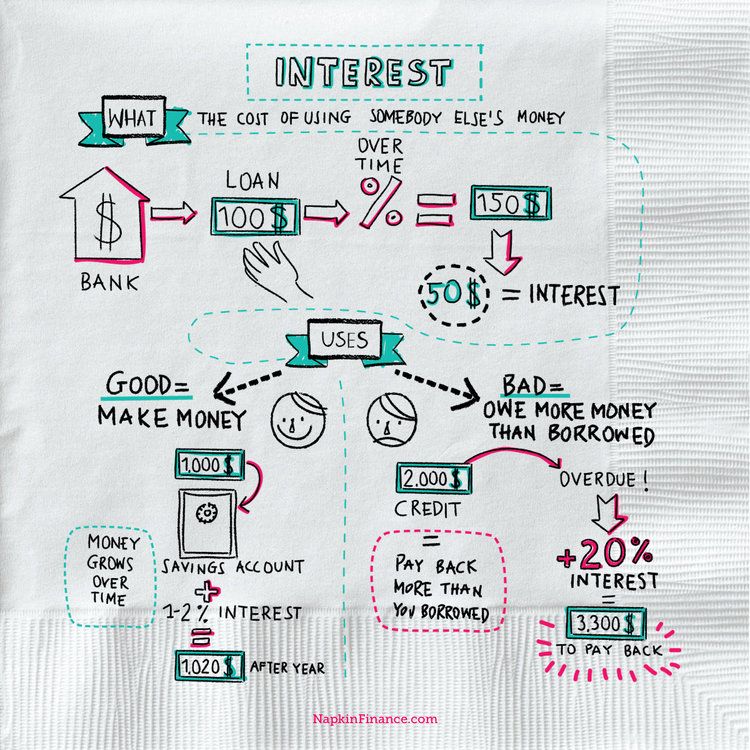 INTEREST
WHAT THE COST OF USING SOMEBODY ELSE'S MONEY
$
BANK
LOAN
100$
OVER
TIME
% =
150$
50$ = INTEREST
USES
GOOD=
MAKE MONEY
1,000$
SAVINGS ACCOUNT
+
1-2% INTEREST
=
1,020$ AFTER YEAR
MONEY
GROWS
OVER
TIME
BAD=
OWE MORE MONEY
THAN BORROWED
2,000$
CREDIT
=
PAY BACK
MORE THAN
YOU BORROWED
OVERDUE!
+20%
INTEREST
=
3,300$
TO PAY BACK
NapkinFinance.com